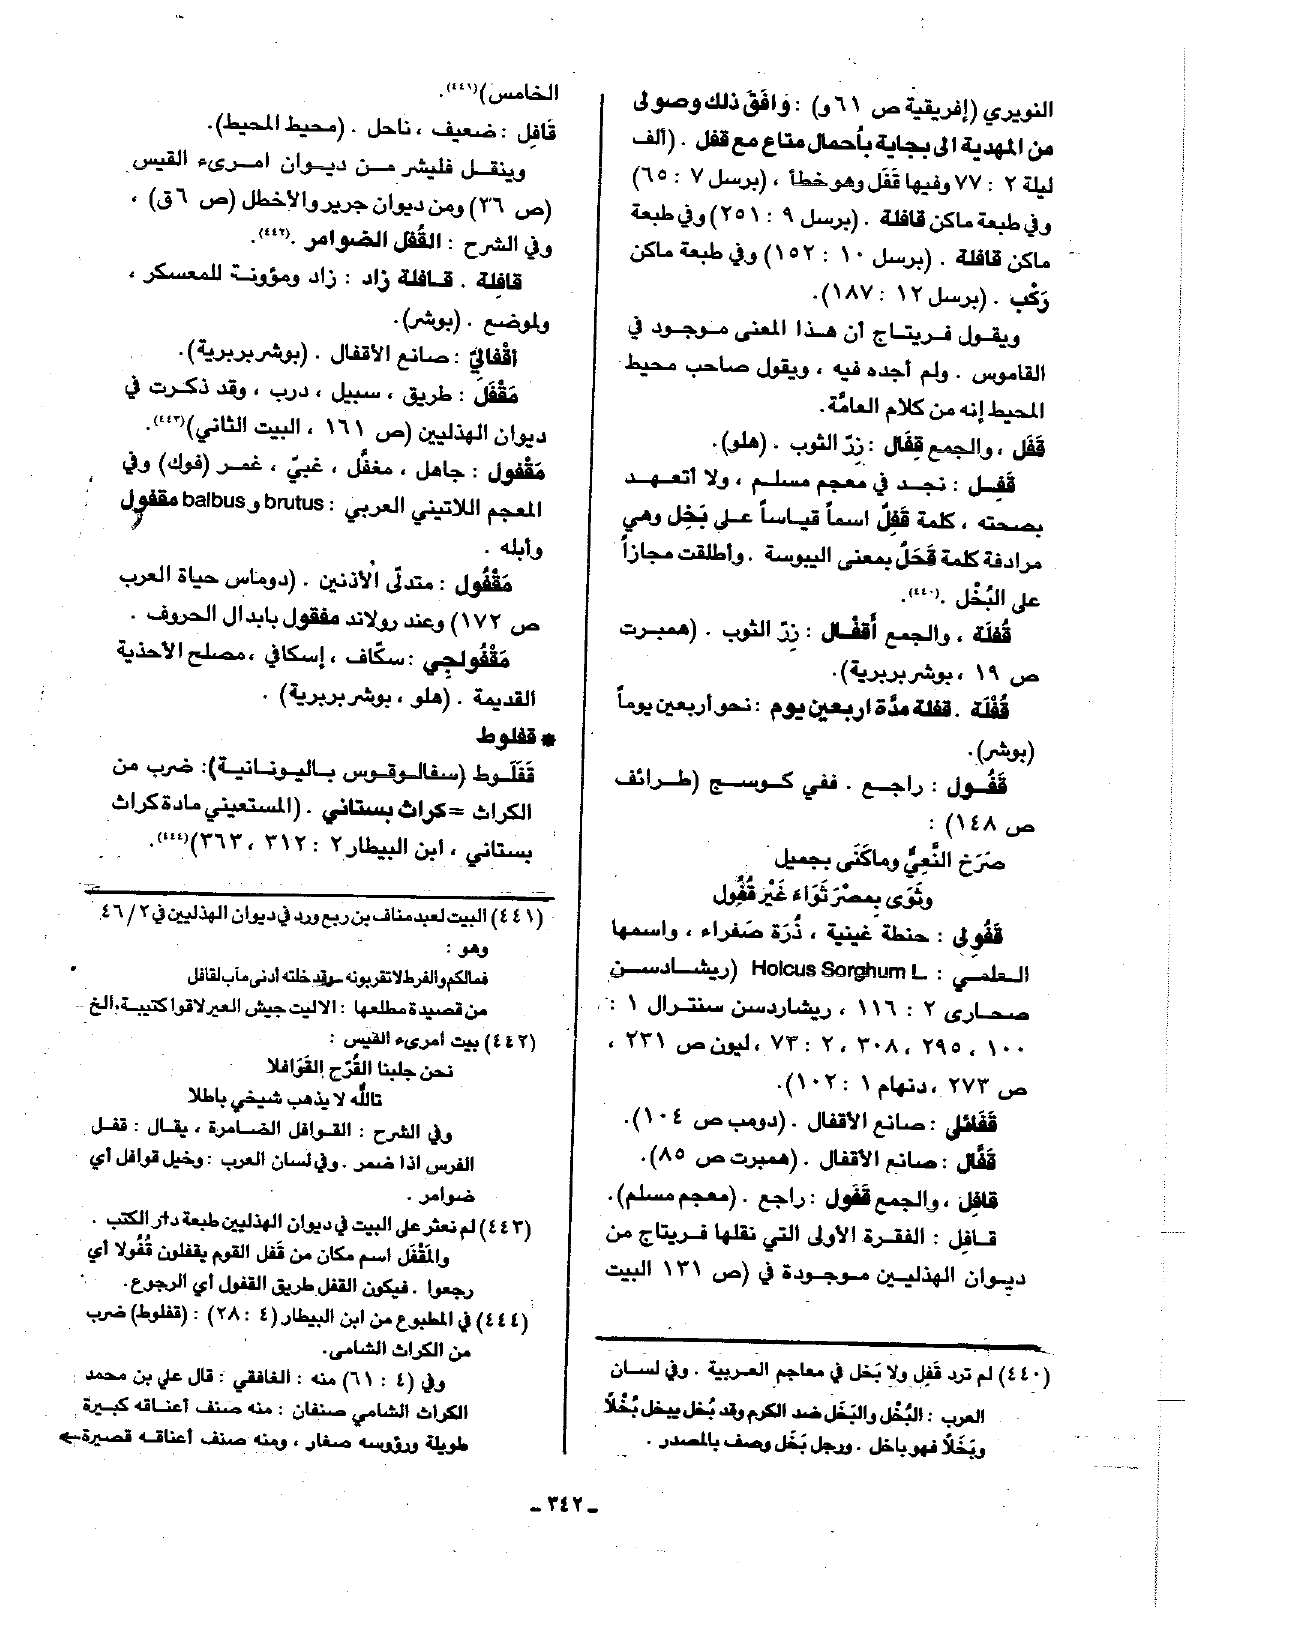 النويري (إفريقية ص ٦١و) : وَافَقَ ذلك وصولى
من المهدية الى بجاية بأحمال متاع مع قفل . (ألف
ليلة ٢ : ٧٧ وفيها قَفَل وهو خطأ ، (برسل ٧ : ٦٥)
وفي طبعة ماكن قافلة . (برسل ٩ : ٢٥١) وفي طبعة
ماكن قافلة . (برسل ١٠ : ١٥٢) وفي طبعة ماكن
رَكْب . (برسل ١٢ : ١٨٧).
ويقول فريتاج أن هذا المعنى موجود في
القاموس . ولم أجده فيه ، ويقول صاحب محيط
المحيط إنه من كلام العامَّة.
قَفَل ، والجمع قِفَال : زرّ الثوب . (هلو).
قَفِل : نجد في معجم مسلم ، ولا أتعهد
بصحته ، كلمة قَفِلٌ اسماً قياساً على بَخِل وهي
مرادفة كلمة قَحَلٌ بمعنى اليبوسة . وأطلقت مجازاً
على البُخْل .(٤٤٠).
قُفلَة ، والجمع أَقْفَال : زرّ الثوب . (همبرت
ص ١٩ ، بوشر بربرية).
قُفْلَة . قفلة مدَّة اربعين يوم : نحو أربعين يوماً
(بوشر).
قَفُول : راجع . ففي كوسج (طرائف
ص ١٤٨) :
صَرَخ النَّعِيُّ وماكَنَى بجميل
وثَوَى بمصْرَ ثَوَاءَ غَيْر قُفُول
قَفُولى : حنطة غينية ، ذُرَة صَفراء ، واسمها
العلمي : Holcus Sorghum L (ريشادسن
صحارى ٢ : ١١٦ ، ريشاردسن سنترال ١ :
١٠٠ ، ٢٩٥ ، ٣٠٨ ، ٢ : ٧٣ ، ليون ص ٢٣١ ،
ص ٢٧٣ ، دنهام ١ : ١٠٢).
قَفَائلى : صانع الأقفال . (دومب ص ١٠٤).
قَفَّال : صانع الأقفال . (همبرت ص ٨٥).
قافِل ، والجمع قَفول : راجع . (معجم مسلم).
قافِل : الفقرة الأولى التي نقلها فريتاج من
ديوان الهذليين موجودة في (ص ١٣١ البيت
(٤٤٠) لم ترد قَفِل ولا بَخل في معاجم العربية . وفي لسان
العرب : البُخْل والبَخَل ضد الكرم وقد بُخل يبخل بُخْلاً
وبَخَلاً فهو باخل . ورجل بَخَل وصف بالمصدر .
الخامس)(٤٤١).
قَافِل : ضعيف ، ناحل . (محيط المحيط).
وينقل فليشر من ديوان امرىء القيس
(ص ٣٦) ومن ديوان جرير والأخطل (ص ٦ق) ،
وفي الشرح : القُفَل الضوامر .(٤٤٢).
قافلة . قافلة زاد : زاد ومؤونة للمعسكر ،
ولموضع . (بوشر).
اَقْفَاليّ : صانع الأقفال . (بوشر بربرية).
مَقْفَلَ : طريق ، سبيل ، درب ، وقد ذكرت في
ديوان الهذليين (ص ١٦١ ، البيت الثاني)(٤٤٣).
مَقْفول : جاهل ، مغفَّل ، غبيّ ، غمر (فوك) وفي
المعجم اللاتيني العربي : brutus وbalbus مقفول
وأبله .
مَقْفُول : متدلّى الأذنين . (دوماس حياة العرب
ص ١٧٢) وعند رولاند مفقول بابدال الحروف .
مَقْفُولجِي : سكَّاف ، إسكافي ، مصلح الأحذية
القديمة . (هلو ، بوشر بربرية) .
* قفلوط
قَفَلَوط (سفالوقوس باليونانية) : ضرب من
الكراث = كراث بستاني . (المستعيني مادة كراث
بستاني ، ابن البيطار ٢ : ٣١٢ ، ٣٦٣)(٤٤٤).
(٤٤١) البيت لعبد مناف بن ربع ورد في ديوان الهذليين في ٤٦/٢
وهو :
فمالكم والفرط لا تقربونه وقد خلته أدنى مآب لقافل
من قصيدة مطلعها : الاليت جيش العير لاقوا كتيبة. الخ
(٤٤٢) بيت أمرىء القيس :
نحن جلبنا القُرَّح القَوَافلا
تاللَّه لا يذهب شيخي باطلا
وفي الشرح : القوافل الضامرة ، يقال : قفل
الفرس اذا ضمر . وفي لسان العرب : وخيل قوافل أي
ضوامر .
(٤٤٣) لم نعثر على البيت في ديوان الهذليين طبعة دار الكتب .
والمَقْفَل اسم مكان من قَفل القوم يقفلون قُفُولا أي
رجعوا . فيكون القفل طريق القفول أي الرجوع.
(٤٤٤) في المطبوع من ابن البيطار (٤ : ٢٨) : (قفلوط) ضرب
من الكراث الشامى.
وفي (٤ : ٦١) منه : الغافقي : قال علي بن محمد
الكراث الشامي صنفان : منه صنف أعناقه كبيرة
طويلة ورؤوسه صغار ، ومنه صنف أعناقه قصيرة←
ـ ٣٤٢ ـ